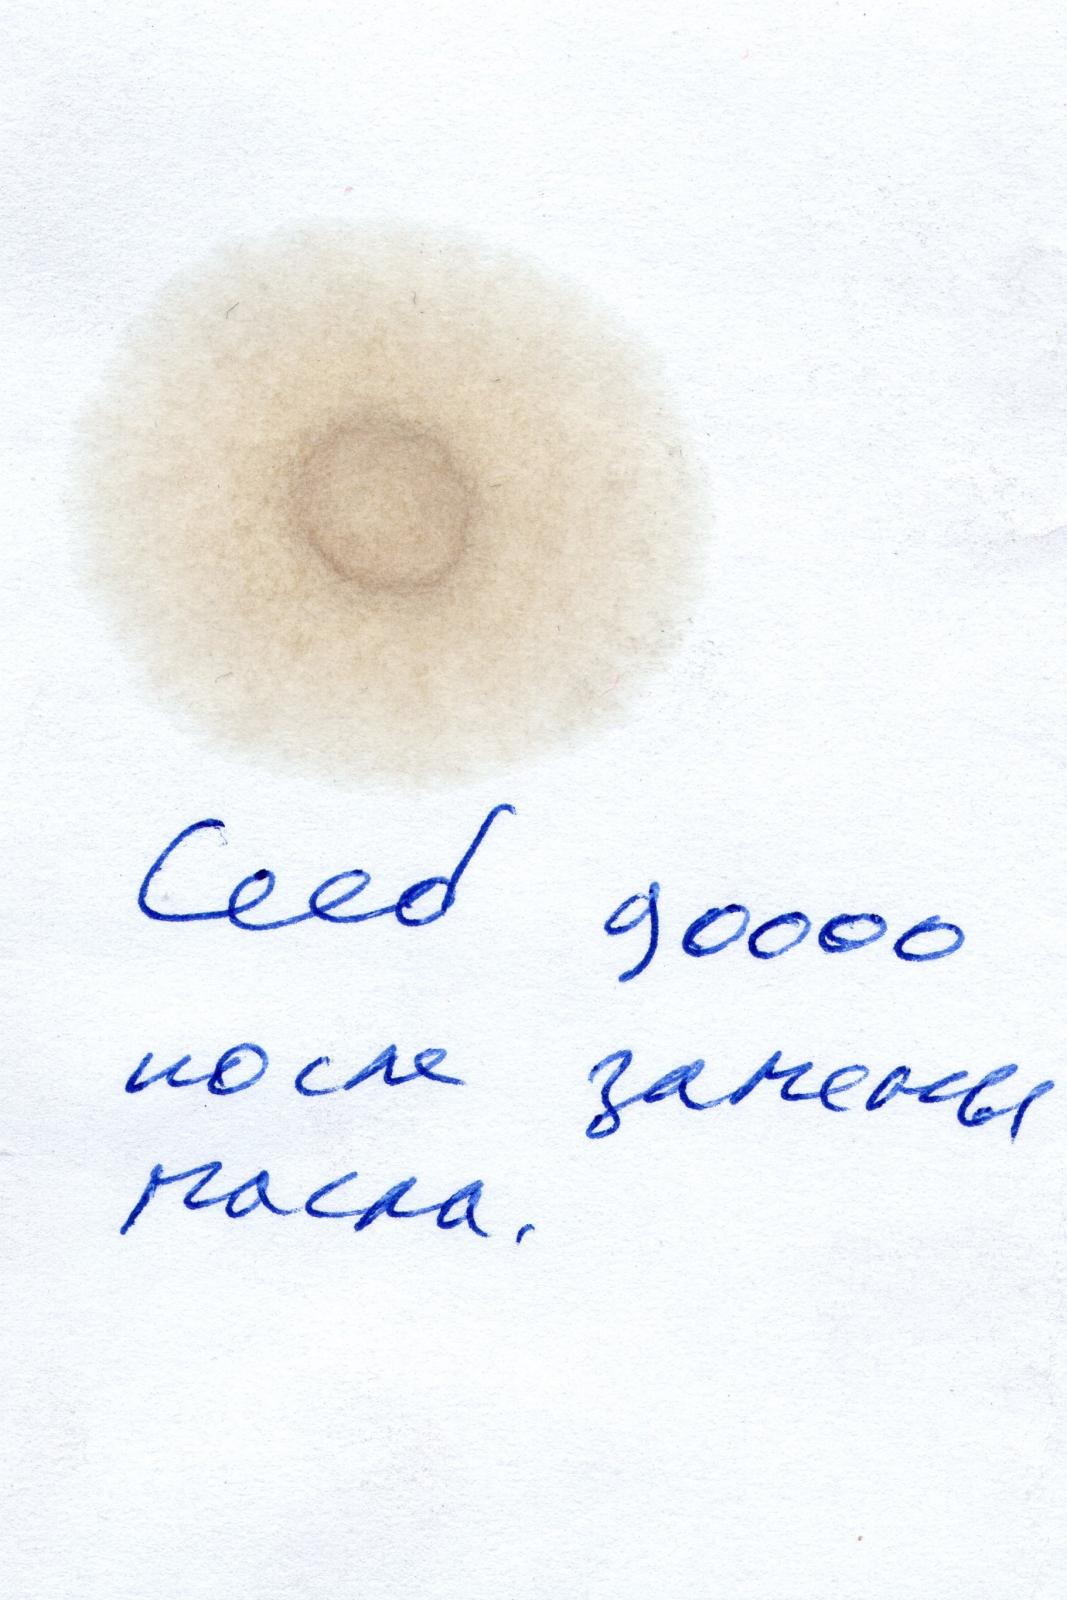 Ceed 90000
после замены
масла.